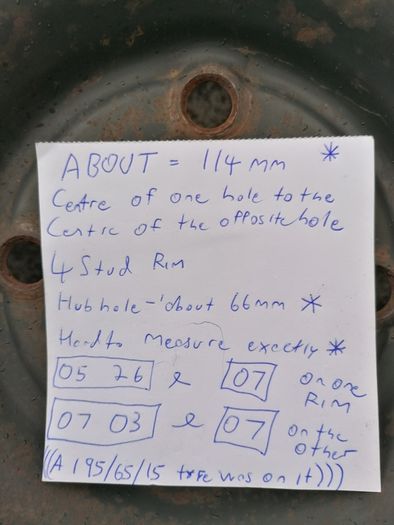 ABOUT = 114 mm *
Centre of one hole to the
Centre of the opposite hole
4 Stud Rim
Hub hole - 'about 66mm *
Hard to measure exectly *
05 26 & 07 on one
RIM
07 03 & 07 on the
other
((A 195/65/15 tyre was on it)))